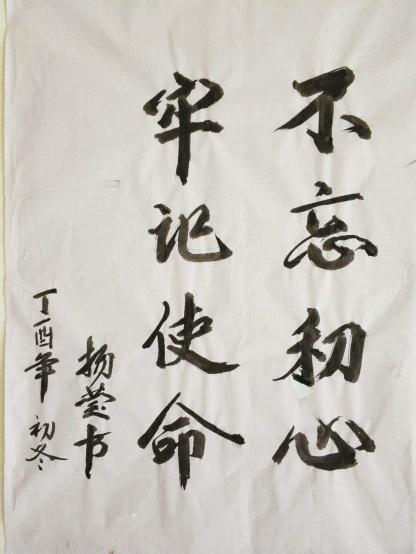 不忘初心
牢记使命
杨莹书
丁酉年初冬